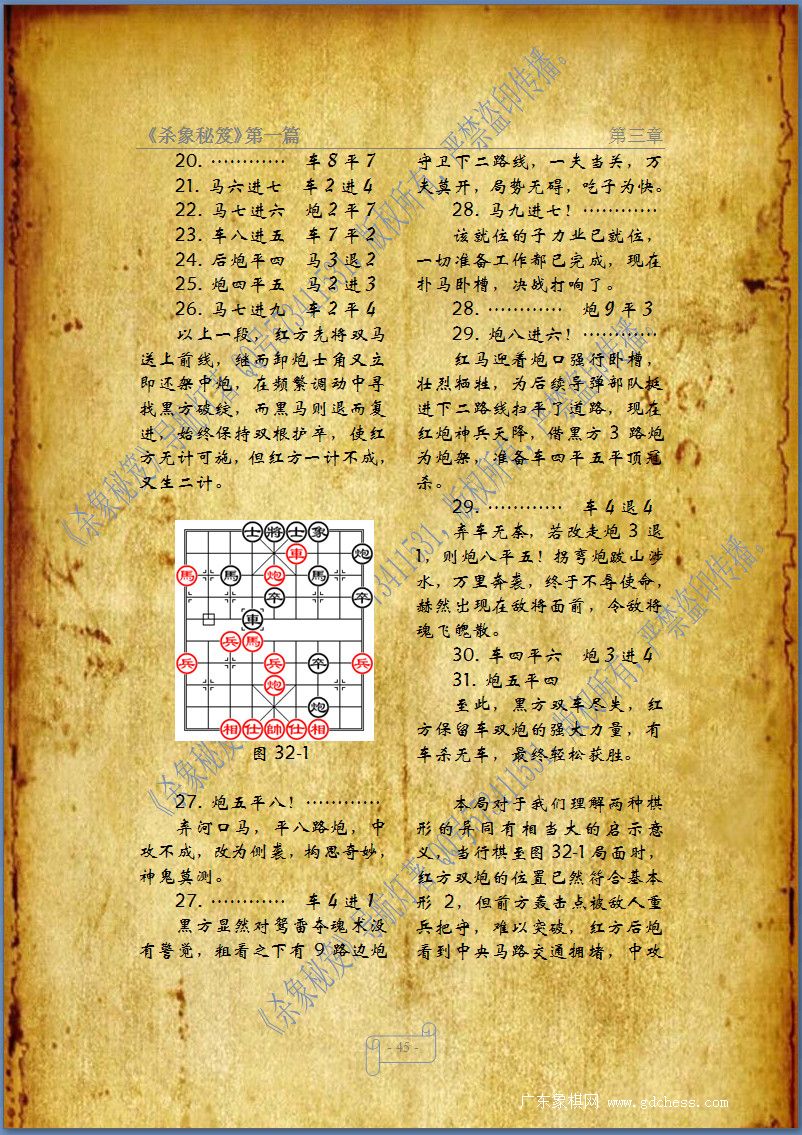 《杀象秘笈》第一篇
第三章
20. ………… 车8平7
21. 马六进七 车2进4
22. 马七进六 炮2平7
23. 车八进五 车7平2
24. 后炮平四 马3退2
25. 炮四平五 马2进3
26. 马七进九 车2平4
以上一段，红方先将双马
送上前线，继而卸炮士角又立
即还架中炮，在频繁调动中寻
找黑方破绽，而黑马则退而复
进，始终保持双根护卒，使红
方无计可施，但红方一计不成，
又生二计。
士將士象
車
炮
馬馬炮馬
卒卒
車
兵馬
兵兵卒兵
炮
炮
相仕帥仕相
图 32-1
27. 炮五平八！…………
弃河口马，平八路炮，中
攻不成，改为侧袭，构思奇妙，
神鬼莫测。
27. ………… 车4进1
黑方显然对鸳雷夺魂术没
有警觉，粗看之下有9路边炮
守卫下二路线，一夫当关，万
夫莫开，局势无碍，吃子为快。
28. 马九进七！…………
该就位的子力业已就位，
一切准备工作都已完成，现在
扑马卧槽，决战打响了。
28. ………… 炮9平3
29. 炮八进六！…………
红马迎着炮口强行卧槽，
壮烈牺牲，为后续导弹部队挺
进下二路线扫平了道路，现在
红炮神兵天降，借黑方3路炮
为炮架，准备车四平五平顶冠
杀。
29. ………… 车4退4
弃车无奈，若改走炮3退
1，则炮八平五！拐弯炮跋山涉
水，万里奔袭，终于不辱使命，
赫然出现在敌将面前，令敌将
魂飞魄散。
30. 车四平六 炮3进4
31. 炮五平四
至此，黑方双车尽失，红
方保留车双炮的强大力量，有
车杀无车，最终轻松获胜。
本局对于我们理解两种棋
形的异同有相当大的启示意
义，当行棋至图32-1局面时，
红方双炮的位置已然符合基本
形2，但前方轰击点被敌人重
兵把守，难以突破，红方后炮
看到中央马路交通拥堵，中攻
- 45 -
广东象棋网 www.gdchess.com